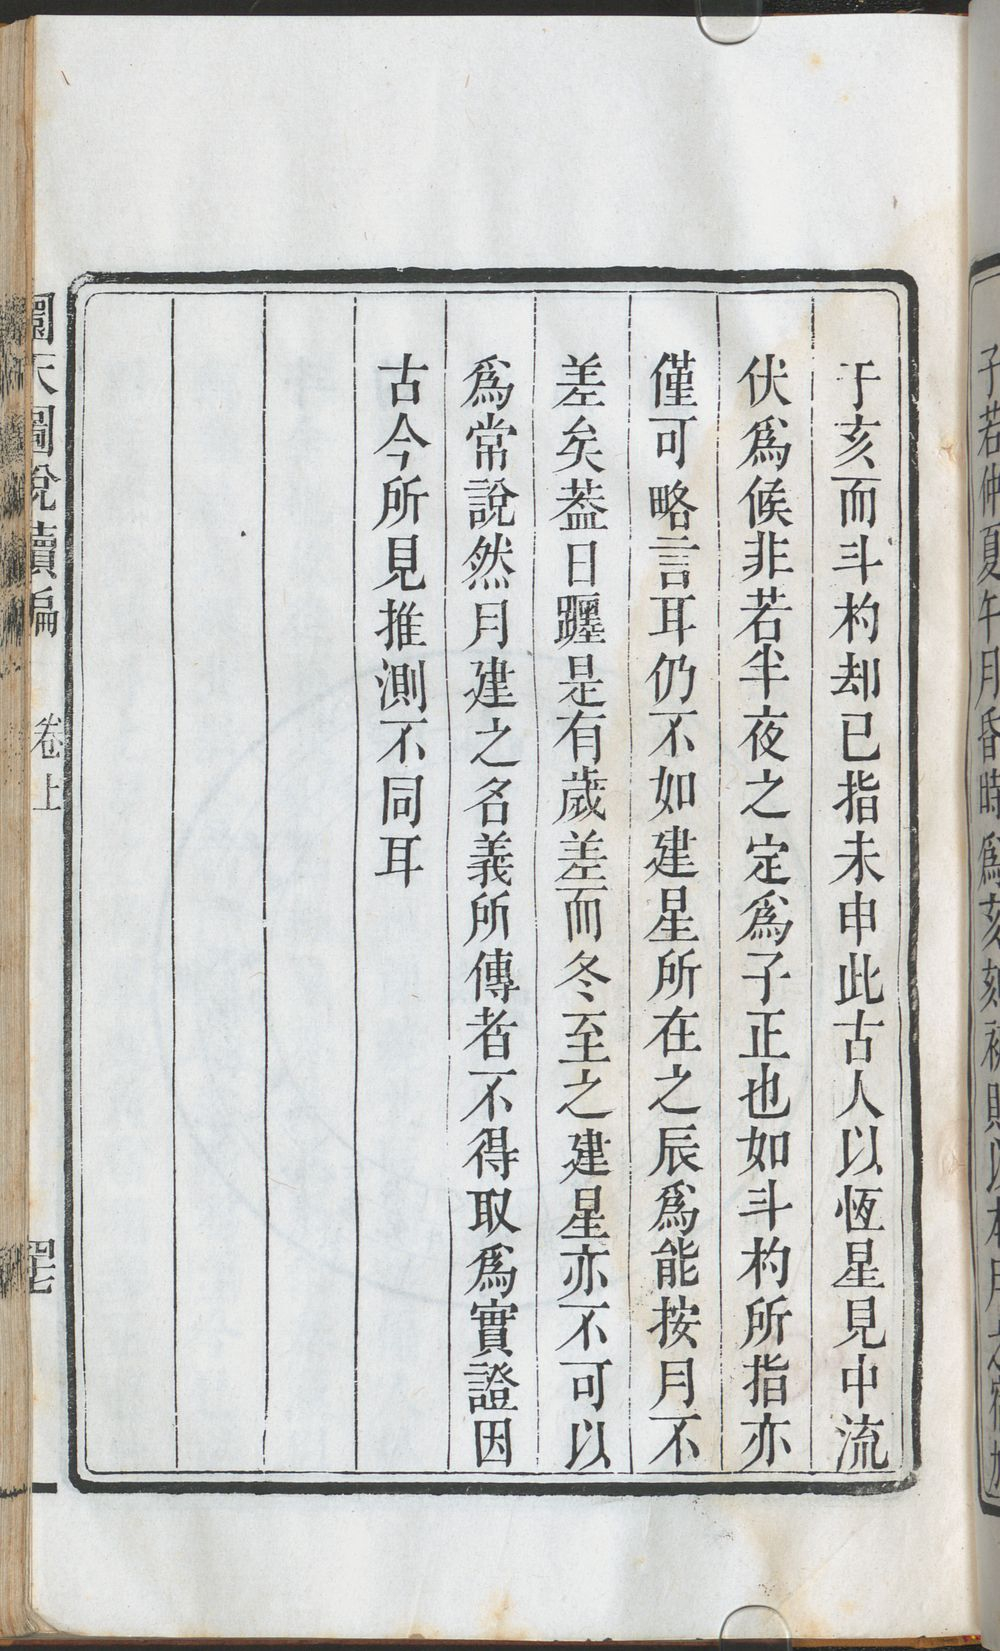 子若仲夏午月昏時爲亥刻初則以本月之
于亥而斗杓却已指未申此古人以恆星見中流
伏爲候非若半夜之定爲子正也如斗杓所指亦
僅可略言耳仍不如建星所在之辰爲能按月不
差矣葢日躔是有歲差而冬至之建星亦不可以
爲常說然月建之名義所傳者不得取爲實證因
古今所見推測不同耳
圜天圖說續編 卷上